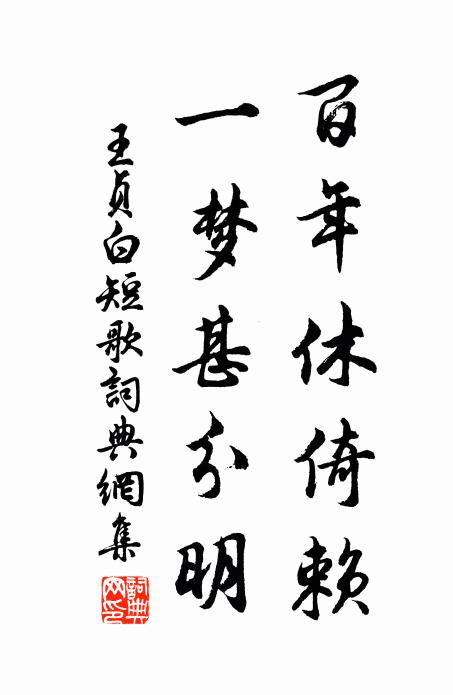 百年休倚赖
一梦甚分明
王贞白短歌詞典網集
詞典网印